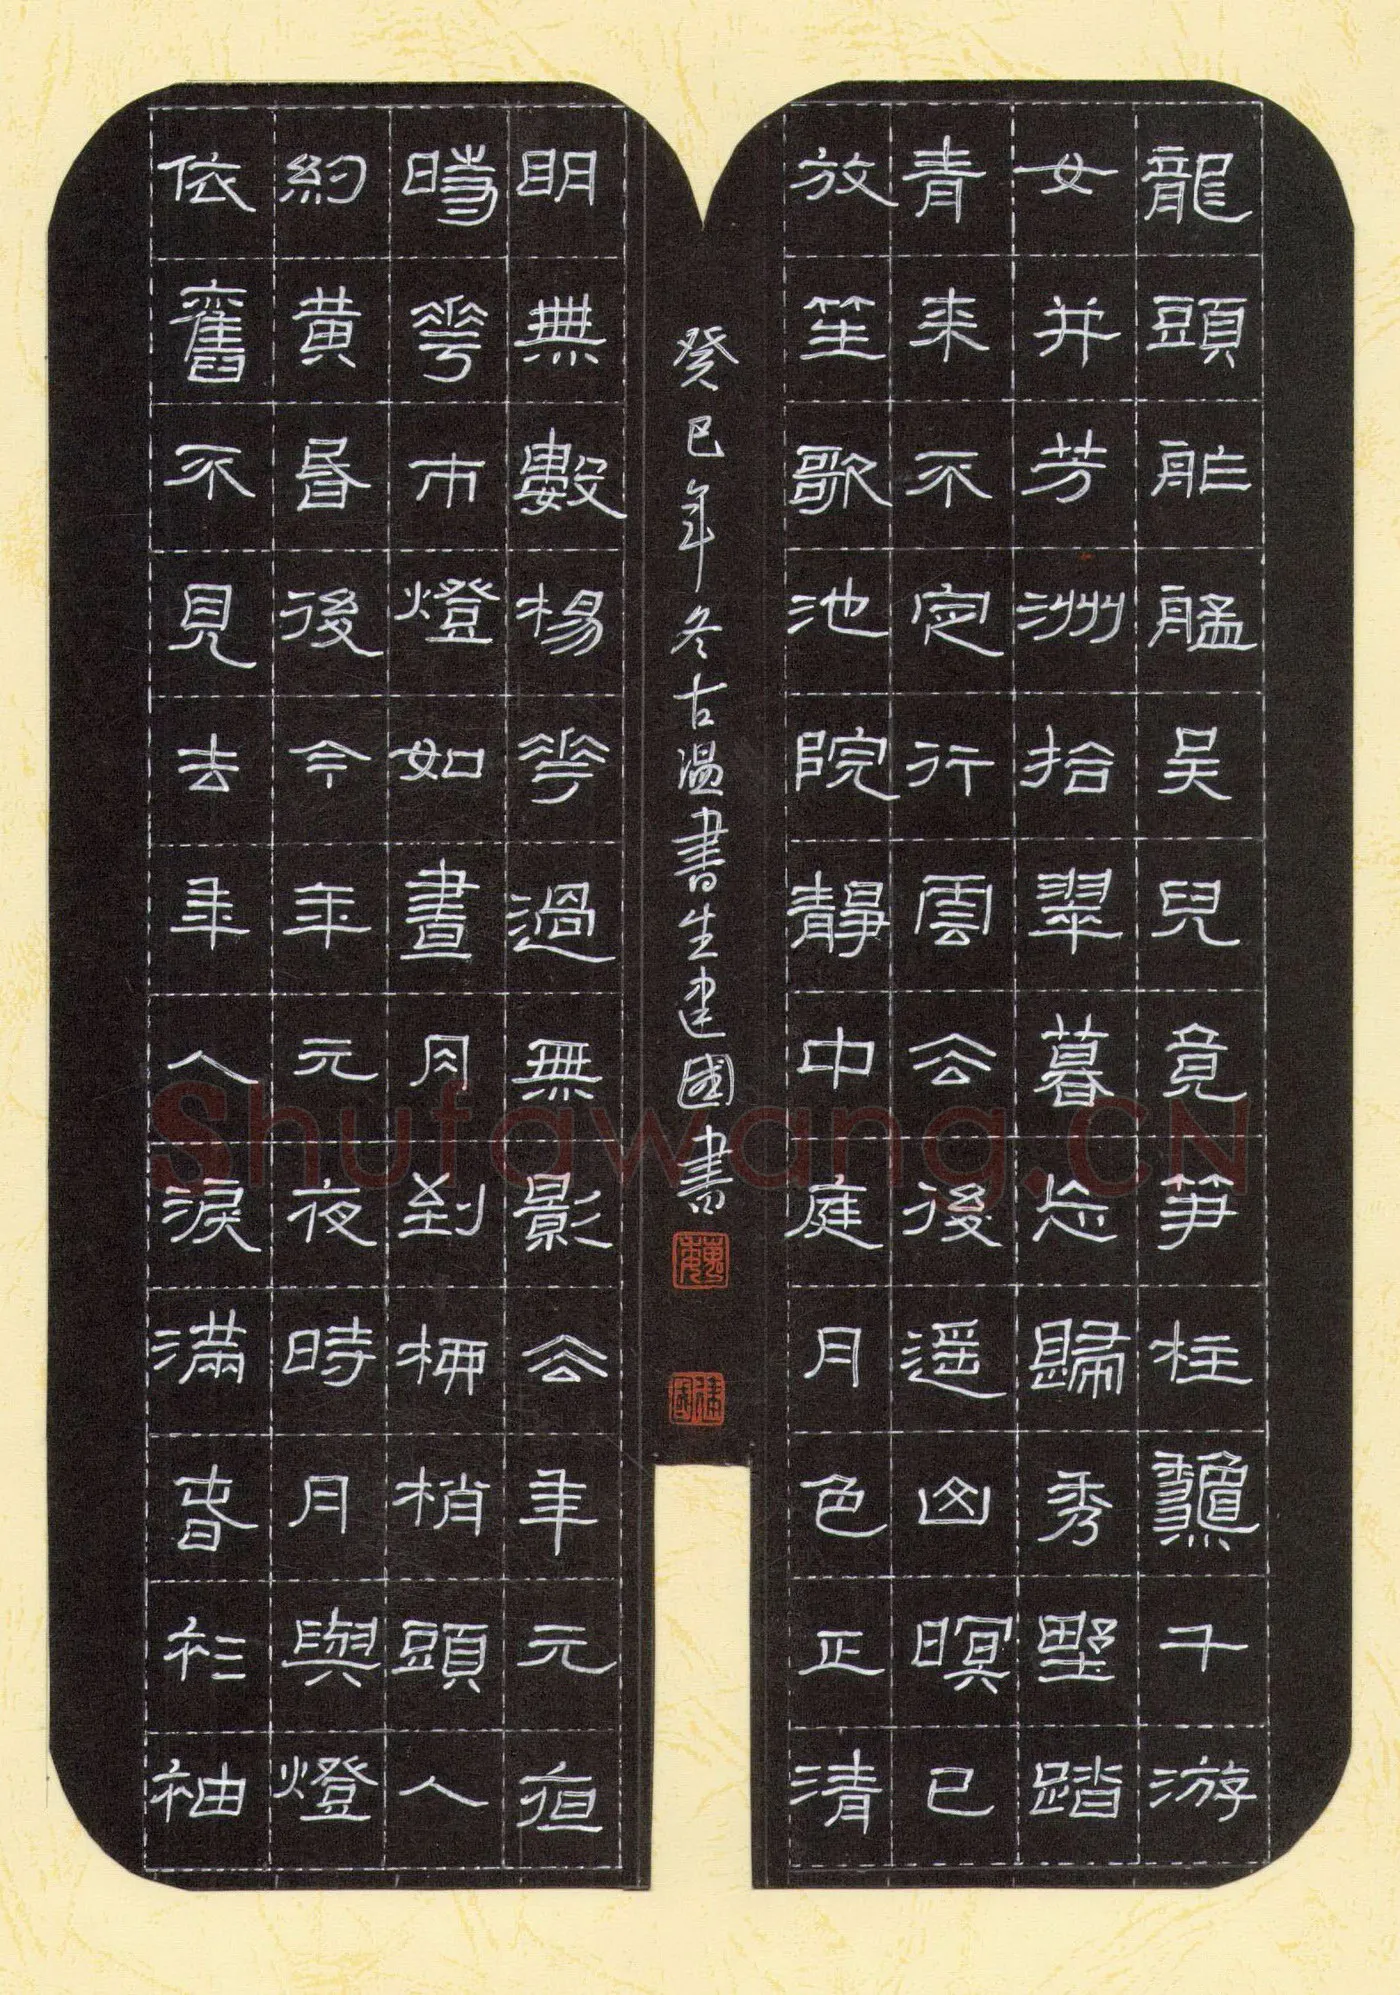 龍頭舴艋吳兒竟筍柱鞦韆游
女并芳洲拾翠暮忘歸秀野踏
青來不定行雲去後遥山暝已
放笙歌池院靜中庭月色正清
明無數楊花過無影去年元夜
時花市燈如晝月到柳梢頭人
約黃昏後今年元夜時月與燈
依舊不見去年人淚滿春衫袖
癸巳年冬古溫書生建國書
魏
建國
Shufawang.CN